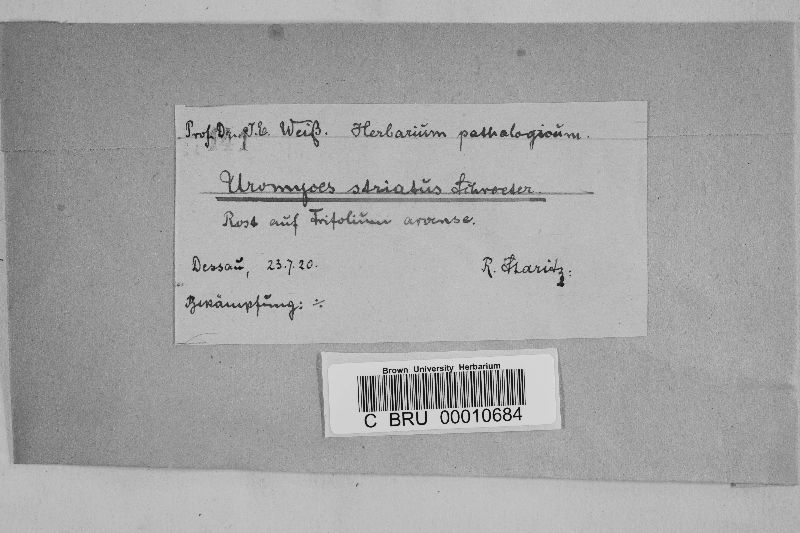 Prof. Dr. J. E. Weiß. Herbarium pathologicum.
Uromyces striatus Schroeter.
Rost auf Trifolium arvense.
Dessau, 23.7.20. R. Staritz.
Bekämpfung: ÷.
Brown University Herbarium
C BRU 00010684